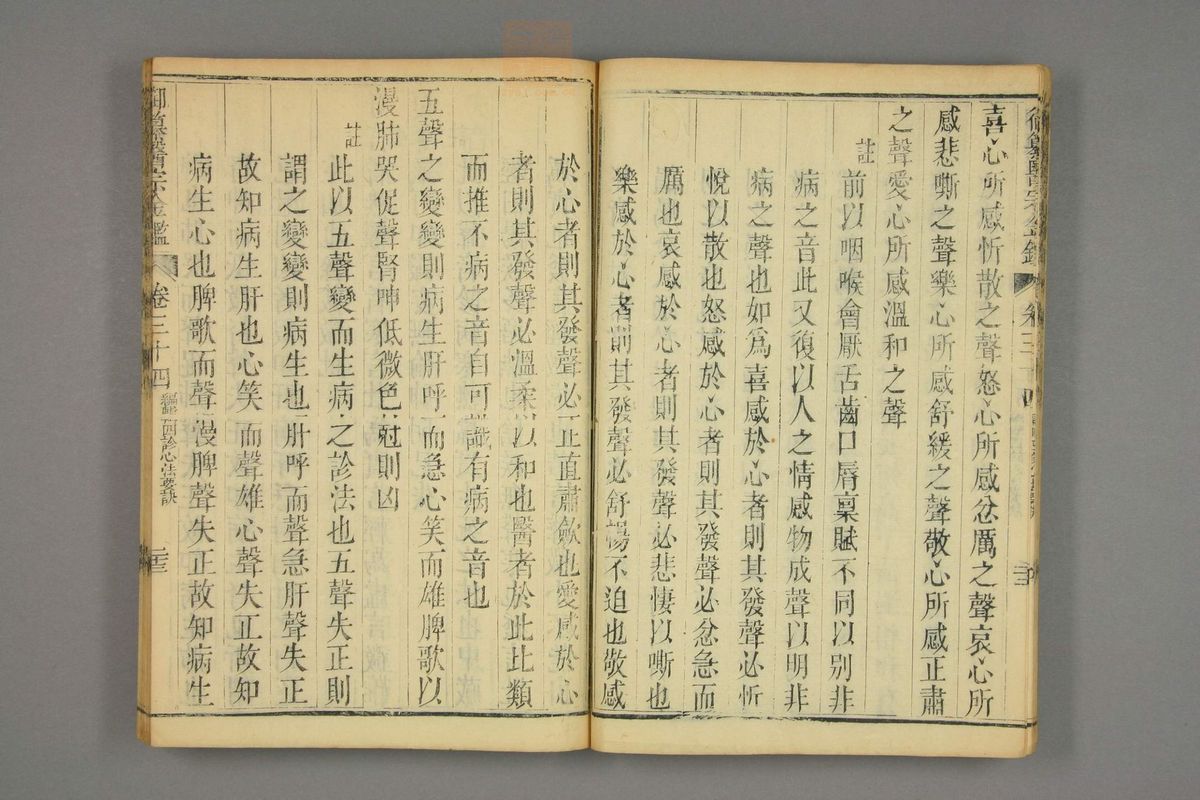 喜心所感忻散之聲怒心所感忿厲之聲哀心所
感悲嘶之聲樂心所感舒緩之聲敬心所感正肅
之聲愛心所感溫和之聲
註
前以咽喉會厭舌齒口脣稟賦不同以别非
病之音此又復以人之情感物成聲以明非
病之聲也如爲喜感於心者則其發聲必忻
悅以散也怒感於心者則其發聲必忿急而
厲也哀感於心者則其發聲必悲悽以嘶也
樂感於心者則其發聲必舒暢不迫也敬感
於心者則其發聲必正直肅斂也愛感於心
者則其發聲必溫柔以和也醫者於此比類
而推不病之音自可識有病之音也
五聲之變變則病生肝呼而急心笑而雄脾歌以
漫肺哭促聲腎呻低微色尅則凶
註
此以五聲變而生病之診法也五聲失正則
謂之變變則病生也肝呼而聲急肝聲失正
故知病生肝也心笑而聲雄心聲失正故知
病生心也脾歌而聲漫脾聲失正故知病生
御纂醫宗金鑑 卷三十四 編輯四診心法要訣 二十三